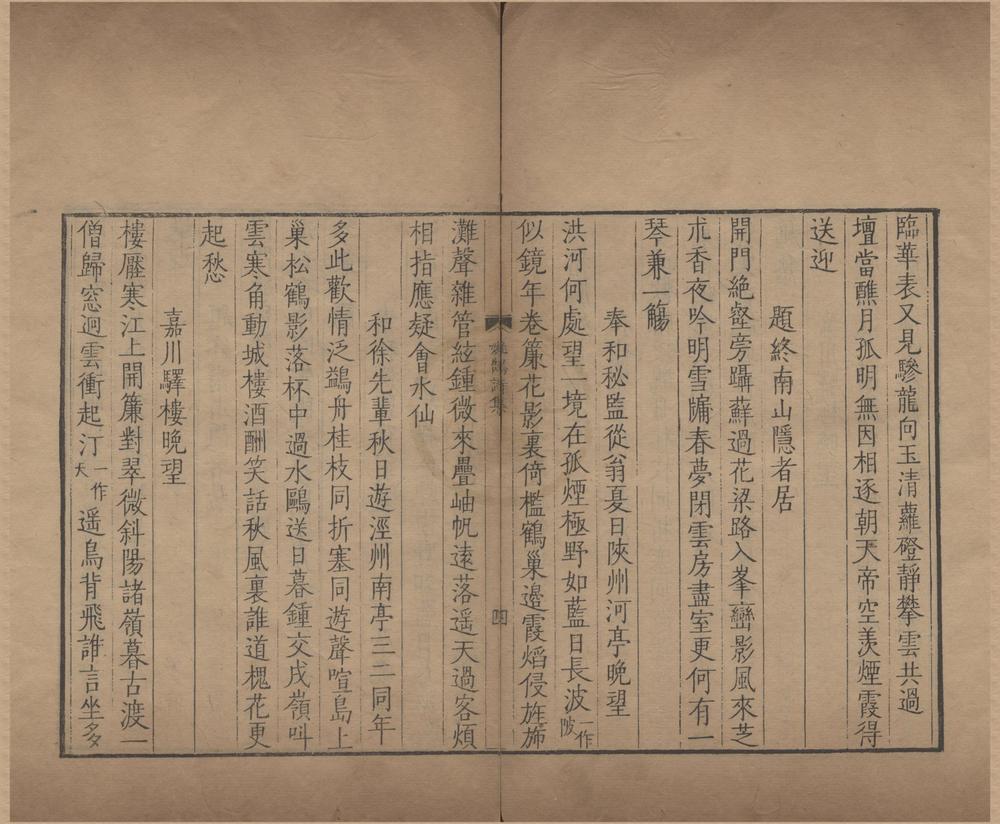 臨華表又見驂龍向玉清蘿磴靜攀雲共過
壇當醮月孤明無因相逐朝天帝空羨煙霞得
送迎
題終南山隱者居
開門絶壑旁躡蘚過花梁路入峯巒影風來芝
朮香夜吟明雪牖春夢閉雲房盡室更何有一
琴兼一觴
奉和秘監從翁夏日陝州河亭晚望
洪河何處望一境在孤煙極野如藍日長波一作陂
似鏡年卷簾花影裏倚檻鶴巢邊霞熖侵旌旆
灘聲雜管絃鍾微來疊岫帆遠落遥天過客煩
相指應疑會水仙
和徐先輩秋日遊涇州南亭呈二三同年
多此歡情泛鷁舟桂枝同折塞同遊聲喧島上
巢松鶴影落杯中過水鷗送日暮鍾交戍嶺叫
雲寒角動城樓酒酬笑話秋風裏誰道槐花更
起愁
嘉川驛樓晚望
樓壓寒江上開簾對翠微斜陽諸嶺暮古渡一
僧歸窓迥雲衝起汀一作天遥鳥背飛誰言坐多